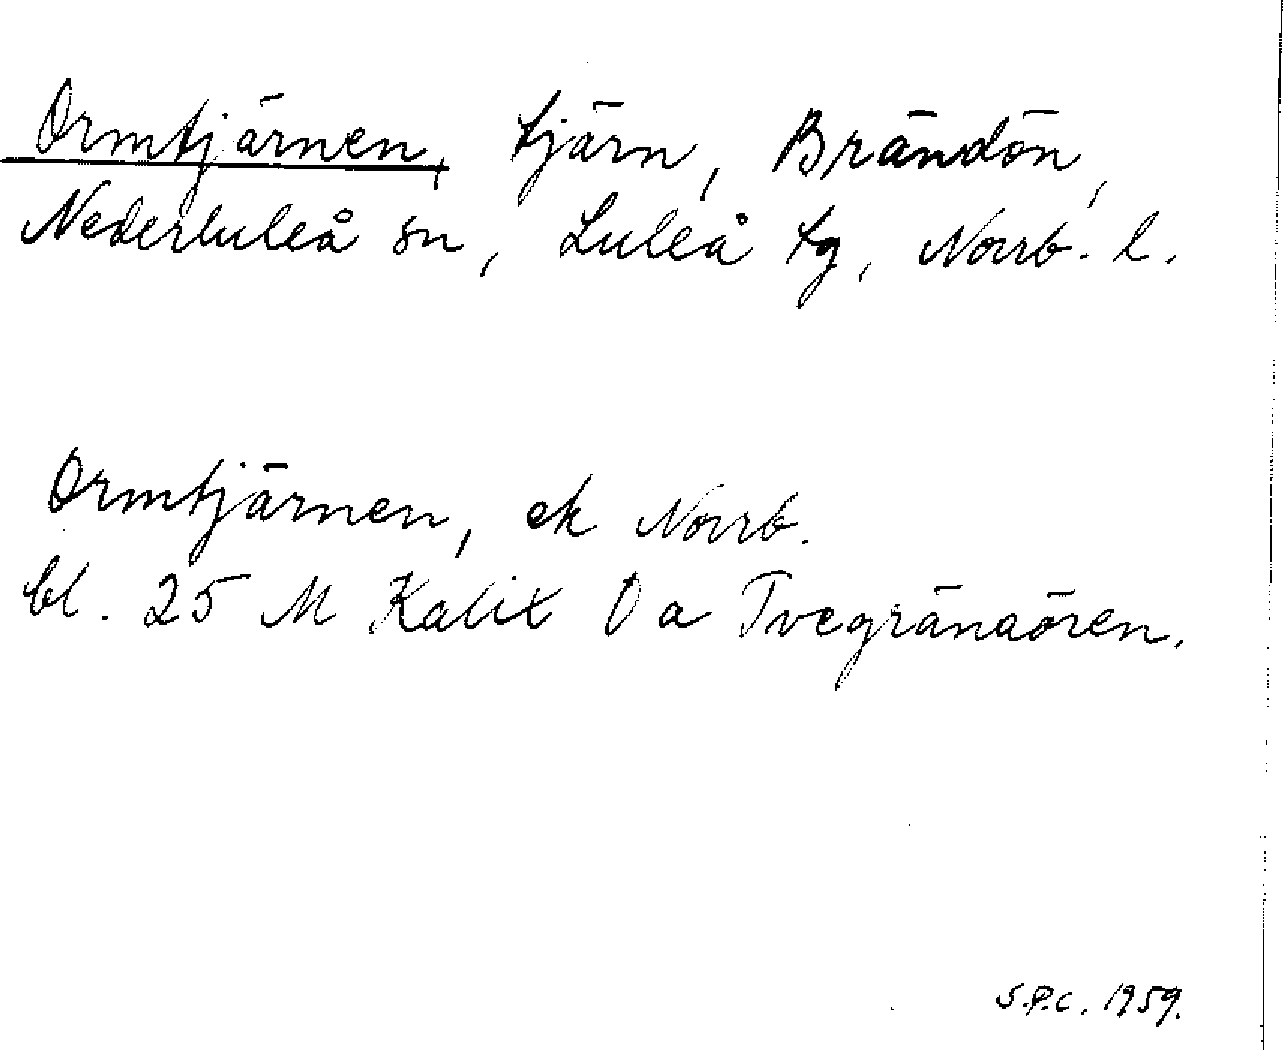 Ormtjärnen, tjärn, Brändön,
Nederluleå sn, Luleå tg, Norrb. l.
Ormtjärnen, ek Norrb.
bl. 25 M Kalix O a Tvegränaören.
S.P.C. 1959.